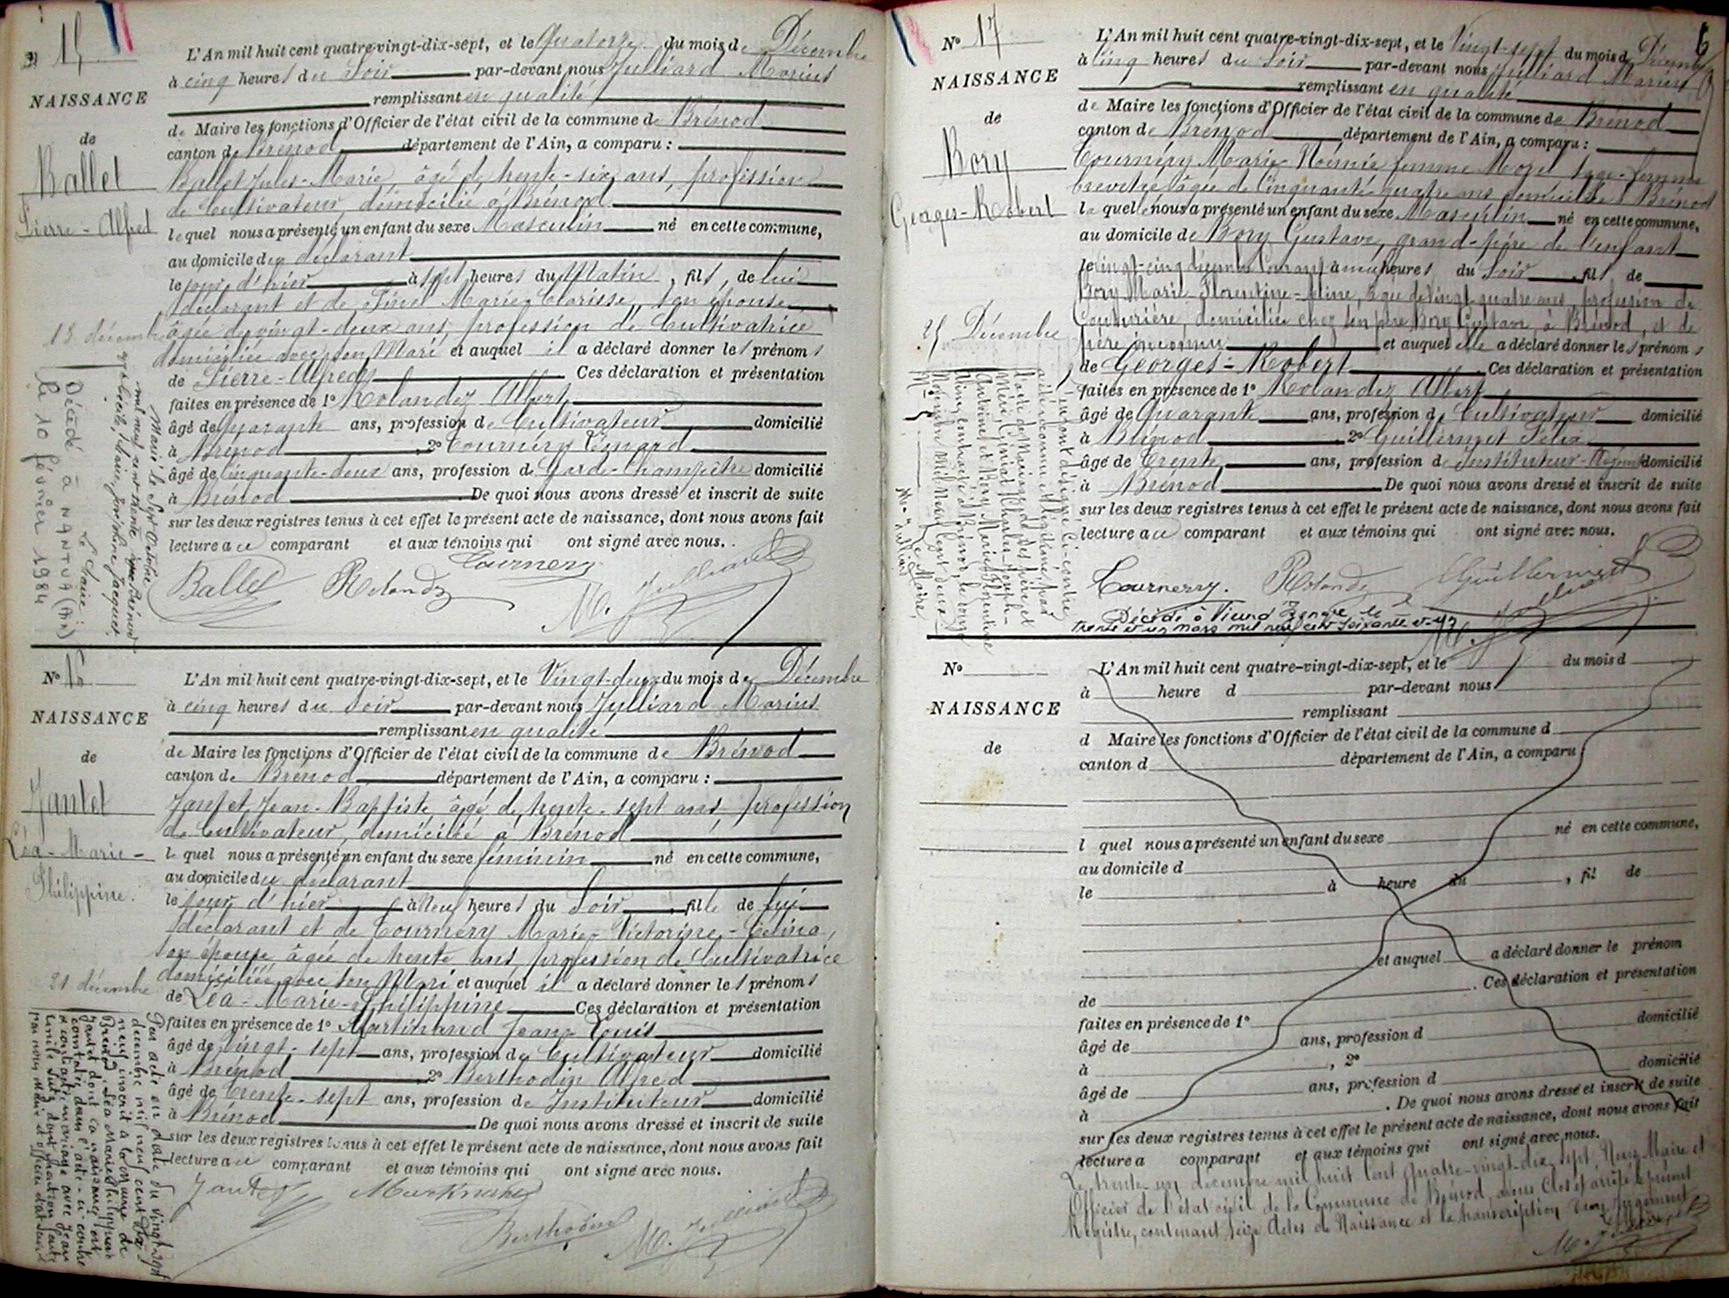 N° 15
NAISSANCE
de
Ballet
Pierre-Alfred
L'An mil huit cent quatre-vingt-dix-sept, et le Quatorze du mois de Décembre
à cinq heures du Soir par-devant nous Julliard Marius
remplissant en qualité
de Maire les fonctions d'Officier de l'état civil de la commune de Brénod
canton de Brénod département de l'Ain, a comparu :
Ballet Jules-Marie, âgé de trente-six ans, profession
de Cultivateur, domicilié à Brénod
lequel nous a présenté un enfant du sexe Masculin né en cette commune,
au domicile du déclarant
le jour d'hier à sept heures du Matin, fils, de lui
déclarant et de Marie-Clarisse, son épouse
âgée de vingt-deux ans, profession de Cultivatrice
domiciliée avec son Mari et auquel il a déclaré donner les prénoms
de Pierre-Alfred Ces déclaration et présentation
faites en présence de 1° Rolandez Albert
âgé de quarante ans, profession de Cultivateur domicilié
à Brénod 2° Tournéry
âgé de Cinquante-deux ans, profession de Garde-Champêtre domicilié
à Brénod De quoi nous avons dressé et inscrit de suite
sur les deux registres tenus à cet effet le présent acte de naissance, dont nous avons fait
lecture au comparant et aux témoins qui ont signé avec nous.
Ballet Rolandez Tournery M. Julliard
13 décembre
Marié le Sept Octobre
mil neuf cent trente à Brénod
avec Marie Joséphine Jacquet
Le Maire :
Décédé à NANTUA (Ain)
le 10 février 1984
N° 16
NAISSANCE
de
Jantet
Léa-Marie-
Philippine.
L'An mil huit cent quatre-vingt-dix-sept, et le Vingt-deux du mois de Décembre
à cinq heures du Soir par-devant nous Julliard Marius
remplissant en qualité
de Maire les fonctions d'Officier de l'état civil de la commune de Brénod
canton de Brénod département de l'Ain, a comparu :
Jantet Jean-Baptiste, âgé de trente-sept ans, profession
de Cultivateur, domicilié à Brénod
lequel nous a présenté un enfant du sexe féminin né en cette commune,
au domicile du déclarant
le jour d'hier à neuf heures du Soir, fille de lui
déclarant et de Tournéry Marie-Victorine-Célina,
son épouse âgée de trente ans, profession de Cultivatrice
domiciliée avec son Mari et auquel il a déclaré donner les prénoms
de Léa-Marie-Philippine Ces déclaration et présentation
faites en présence de 1° Martinand Jean-Louis
âgé de vingt-sept ans, profession de Cultivateur domicilié
à Brénod 2° Berthodin Alfred
âgé de Trente-sept ans, profession de Instituteur domicilié
à Brénod De quoi nous avons dressé et inscrit de suite
sur les deux registres tenus à cet effet le présent acte de naissance, dont nous avons fait
lecture au comparant et aux témoins qui ont signé avec nous.
Jantet Martinand
Berthodin M. Julliard
21 décembre
Par acte en date du vingt-sept
décembre mil neuf cent
neuf, inscrit à la mairie de
Brénod, Léa Marie Philippine
Jantet dont la naissance est
constatée dans l'acte ci-contre
a contracté mariage avec Jean
par nous Maire et officier d'état civil
6
N° 17
NAISSANCE
de
Bory
Georges-Robert
L'An mil huit cent quatre-vingt-dix-sept, et le Vingt-sept du mois de Décembre
à Cinq heures du Soir par-devant nous Julliard Marius
remplissant en qualité
de Maire les fonctions d'Officier de l'état civil de la commune de Brénod
canton de Brénod département de l'Ain, a comparu :
Tournéry Marie-Noémie femme Mozu Sage-femme
brevetée âgée de Cinquante-quatre ans domiciliée à Brénod
laquelle nous a présenté un enfant du sexe Masculin né en cette commune,
au domicile de Bory Gustave, grand-père de l'enfant
le vingt-cinq décembre Courant à neuf heures du Soir fils de
Bory Marie-Florentine-Aline, âgée de vingt-quatre ans, profession de
Couturière, domiciliée chez son père Bory Gustave, à Brénod, et de
père inconnu et auquel elle a déclaré donner les prénoms
de Georges-Robert Ces déclaration et présentation
faites en présence de 1° Rolandez Albert
âgé de Quarante ans, profession de Cultivateur domicilié
à Brénod 2° Guillermet Félix
âgé de Trente ans, profession de Instituteur-Adjoint domicilié
à Brénod De quoi nous avons dressé et inscrit de suite
sur les deux registres tenus à cet effet le présent acte de naissance, dont nous avons fait
lecture au comparant et aux témoins qui ont signé avec nous.
Tournery. Rolandez Guillermet
Décédé à Vieu d'Izenave le
trente et un mars mil neuf cent soixante et un
M. Julliard
25 Décembre
L'enfant désigné ci-contre
a été reconnu et légitimé par
l'acte de Mariage de ses père et
mère
Le Maire,
M. Julliard
N°
NAISSANCE
de
L'An mil huit cent quatre-vingt-dix-sept, et le du mois d
à heure d par-devant nous
remplissant
d Maire les fonctions d'Officier de l'état civil de la commune d
canton d département de l'Ain, a comparu
l quel nous a présenté un enfant du sexe né en cette commune,
au domicile d
le à heure du , fil de
et auquel a déclaré donner le prénom
de . Ces déclaration et présentation
faites en présence de 1°
âgé de ans, profession d domicilié
à , 2°
âgé de ans, profession d domicilié
à . De quoi nous avons dressé et inscrit de suite
sur les deux registres tenus à cet effet le présent acte de naissance, dont nous avons fait
lecture a comparant et aux témoins qui ont signé avec nous.
Le trente un décembre mil huit cent quatre-vingt-dix-sept, Nous, Maire et
Officier de l'état civil de la Commune de Brénod, avons Clos et arrêté le présent
Registre, contenant Seize Actes de Naissance et la transcription d'un Jugement
M. Julliard